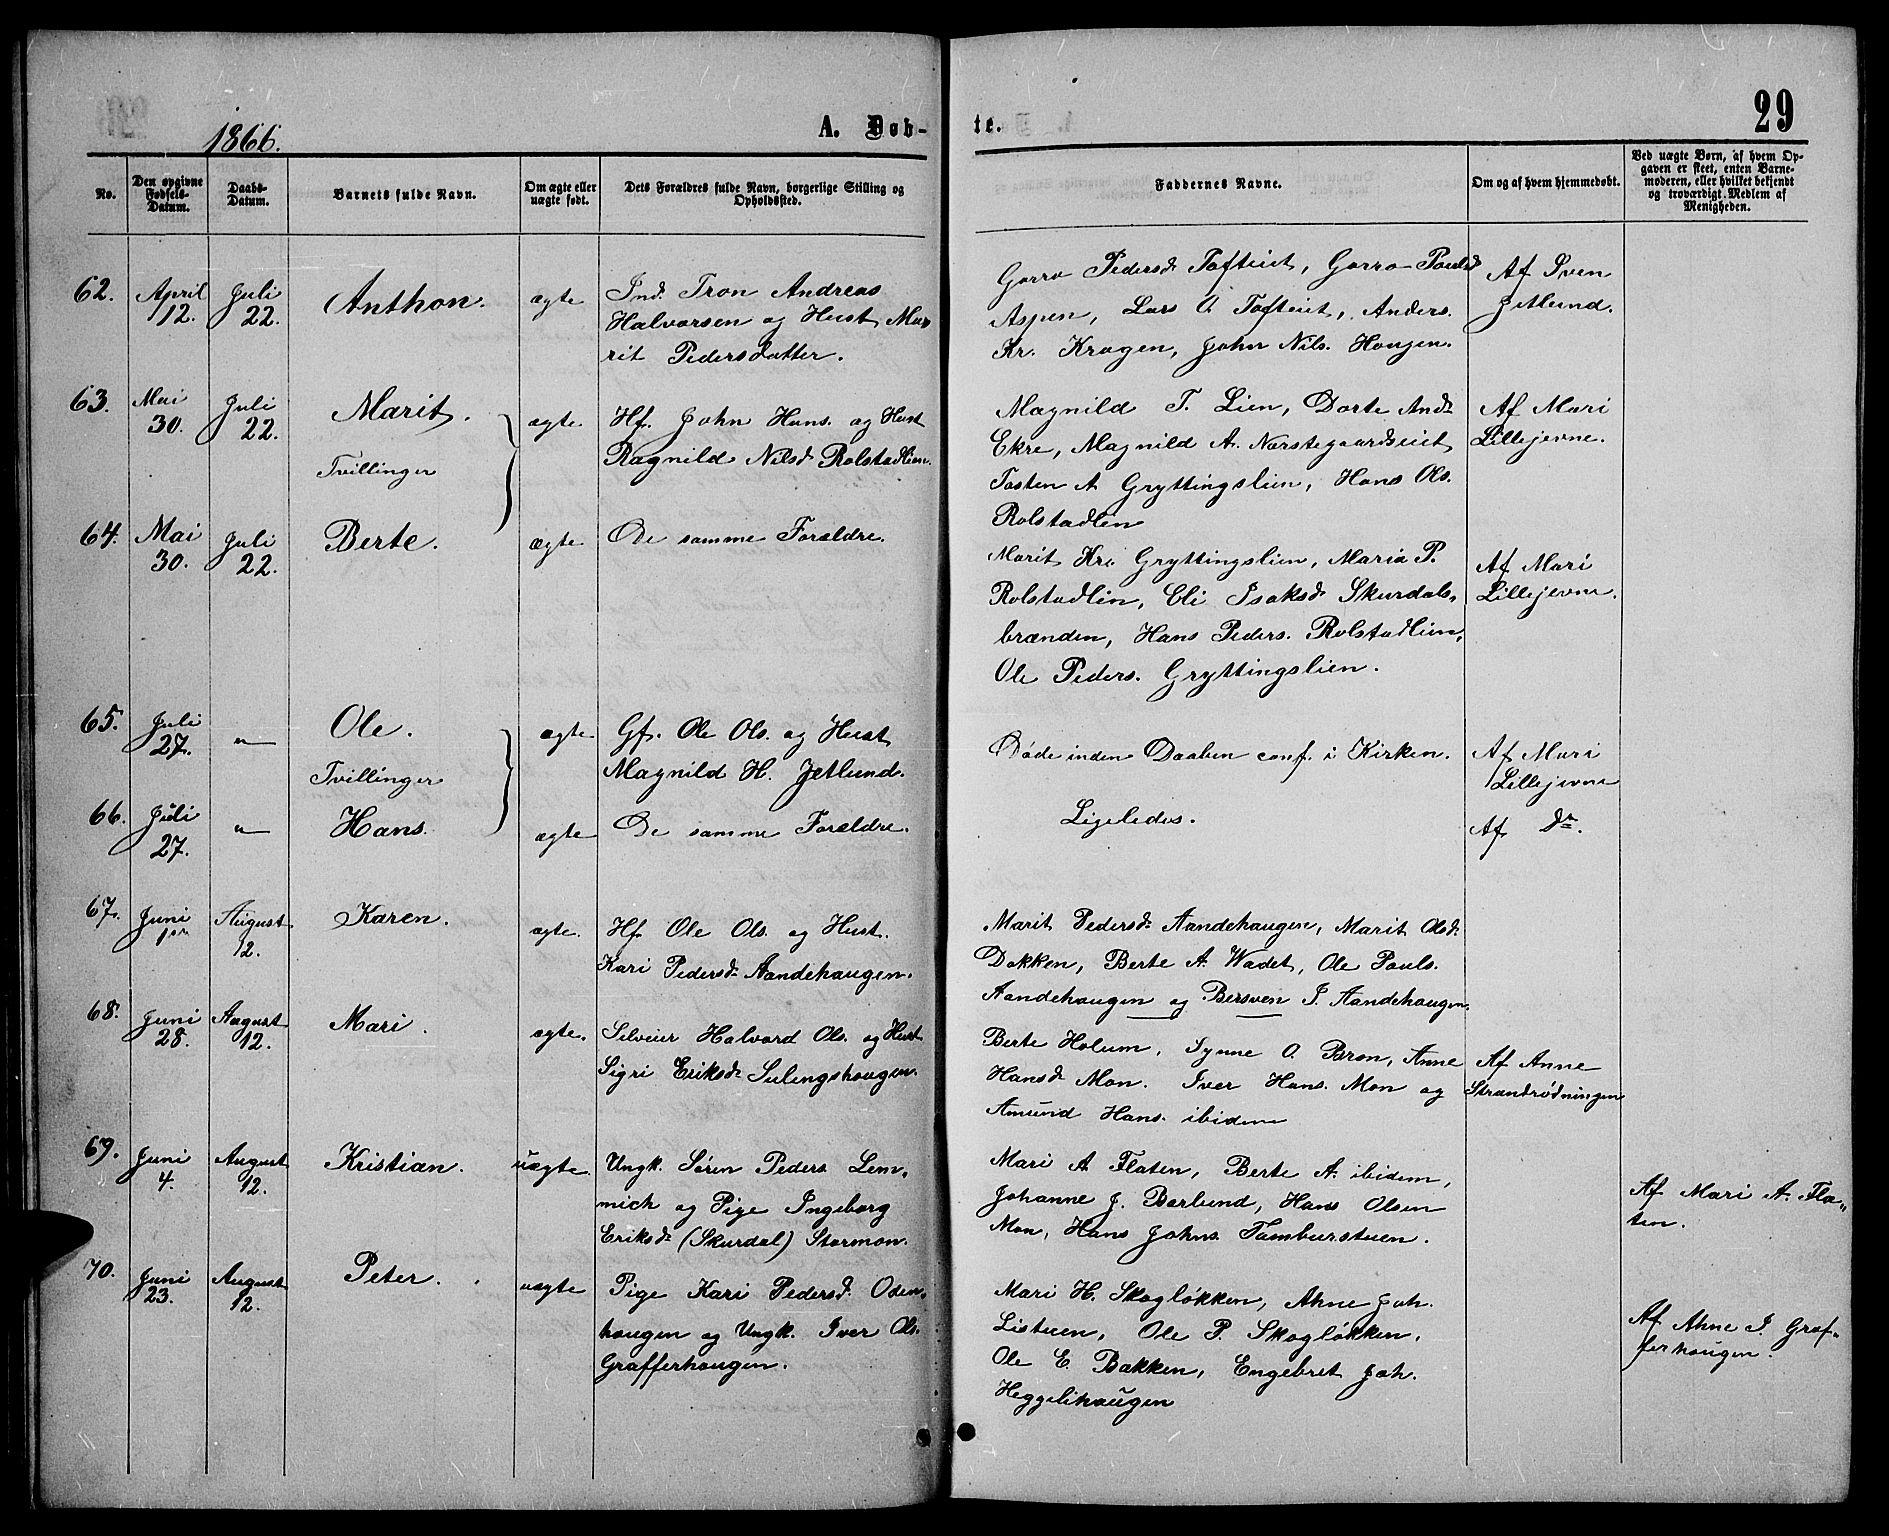 1866.
A. Døb-
No.
Den opgivne Fødsels-Datum.
Daabs-Datum.
Barnets fulde Navn.
Om ægte eller uægte født.
Dets Forældres fulde Navn, borgerlige Stilling og Opholdssted.
62.
April 12.
Juli 22.
Anthon.
ægte
Ind. Tron Andreas
Halvorsen og Hust. Ma-
rit Pedersdatter.
63.
Mai 30.
Juli 22.
Marit.
Tvillinger
ægte
Hf. John Hans. og Hust
Ragnild Nilsd Rolstadlien.
64.
Mai 30.
Juli 22.
Berte.
ægte
De samme Forældre.
65.
Juli 27.
"
Ole.
Tvillinger
ægte
Gf. Ole Ols. og Hust
Magnild H. Jetlund.
66.
Juli 27.
"
Hans.
ægte
De samme Forældre.
67.
Juni 1ste
August 12.
Karen.
ægte.
Hf Ole Ols. og Hust.
Kari Pedersd. Aandehaugen.
68.
Juni 28.
August 12.
Mari.
ægte.
Selveier Halvord Ols. og Hust.
Sigri Eriksd. Sulingshougen.
69.
Juni 4.
August 12.
Kristian.
uægte.
Ungk. Søren Peders Lem-
mich og Pige Ingeborg
Eriksd. (Skurdal) Stormon.
70.
Juni 23.
August 12.
Peter.
uægte
Pige Kari Pedersd. Oden-
hougen og Ungk. Iver Ols.
Grafferhougen.
te.
29
Faddernes Navne.
Om og af hvem hjemmedøbt.
Ved uægte Børn, af hvem Op-
gaven er skeet, enten Barne-
moderen, eller hvilket bekjendt
og troværdigt Medlem af
Menigheden.
Gorro Pedersd Tofteiet, Gorro Poulsd
Aspen, Lars O. Tofteiet, Anders.
Kr. Kragen, John Nils. Hougen.
Af Sven
Jetlund.
Magnild T. Lien, Dorte And.
Ekre, Magnild A. Nørstegaardseiet
Tosten A Gryttingslien, Hans Ols.
Rolstadlen
Af Mari
Lillejevne.
Marit Kr. Gryttingslien, Maria P.
Rolstadlin, Eli Isaksd Skurdals-
brænden, Hans Peders. Rolstadlien,
Ole Peders. Gryttingslien.
Af Mari
Lillejevne.
Døde inden Daaben conf. i Kirken.
Af Mari
Lillejevne
Ligeledes.
Af Do.
Marit Pedersd. Aandehaugen, Marit Olsd.
Dokken, Berte A. Wadet, Ole Pouls.
Aandehaugen og Bersven I. Aandehaugen.
Berte Holum, Synne O. Bron, Anne
Hansd Mon. Iver Hans. Mon og
Amund Hans. ibidem
Af Anne
Strandrødningen
Mari A Flaten, Berte A. ibidem,
Johanne J. Barlund, Hans Olsen
Mon, Hans Johns. Tamburstuen.
Af Mari A. Fla-
ten.
Mari H. Skogløkken, Ahne Joh.
Listuen, Ole P. Skogløkken,
Ole E. Bakken, Engebret Joh.
Heggelihaugen
Af Ahne I. Graf-
ferhaugen.